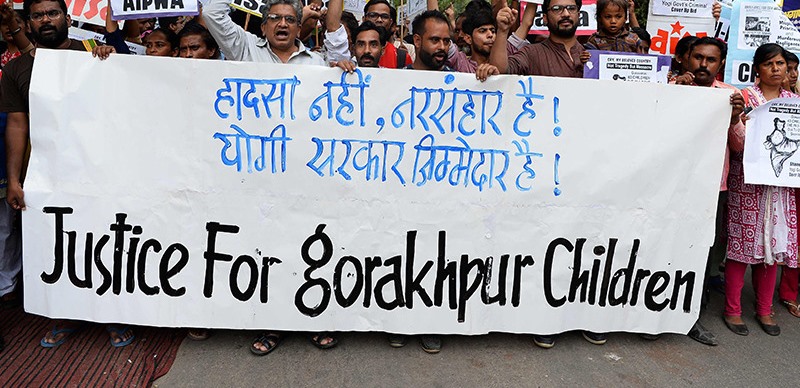 AIPWA
हादसा नहीं, नरसंहार है!
योगी सरकार ज़िम्मेदार है!
Justice For Gorakhpur Children